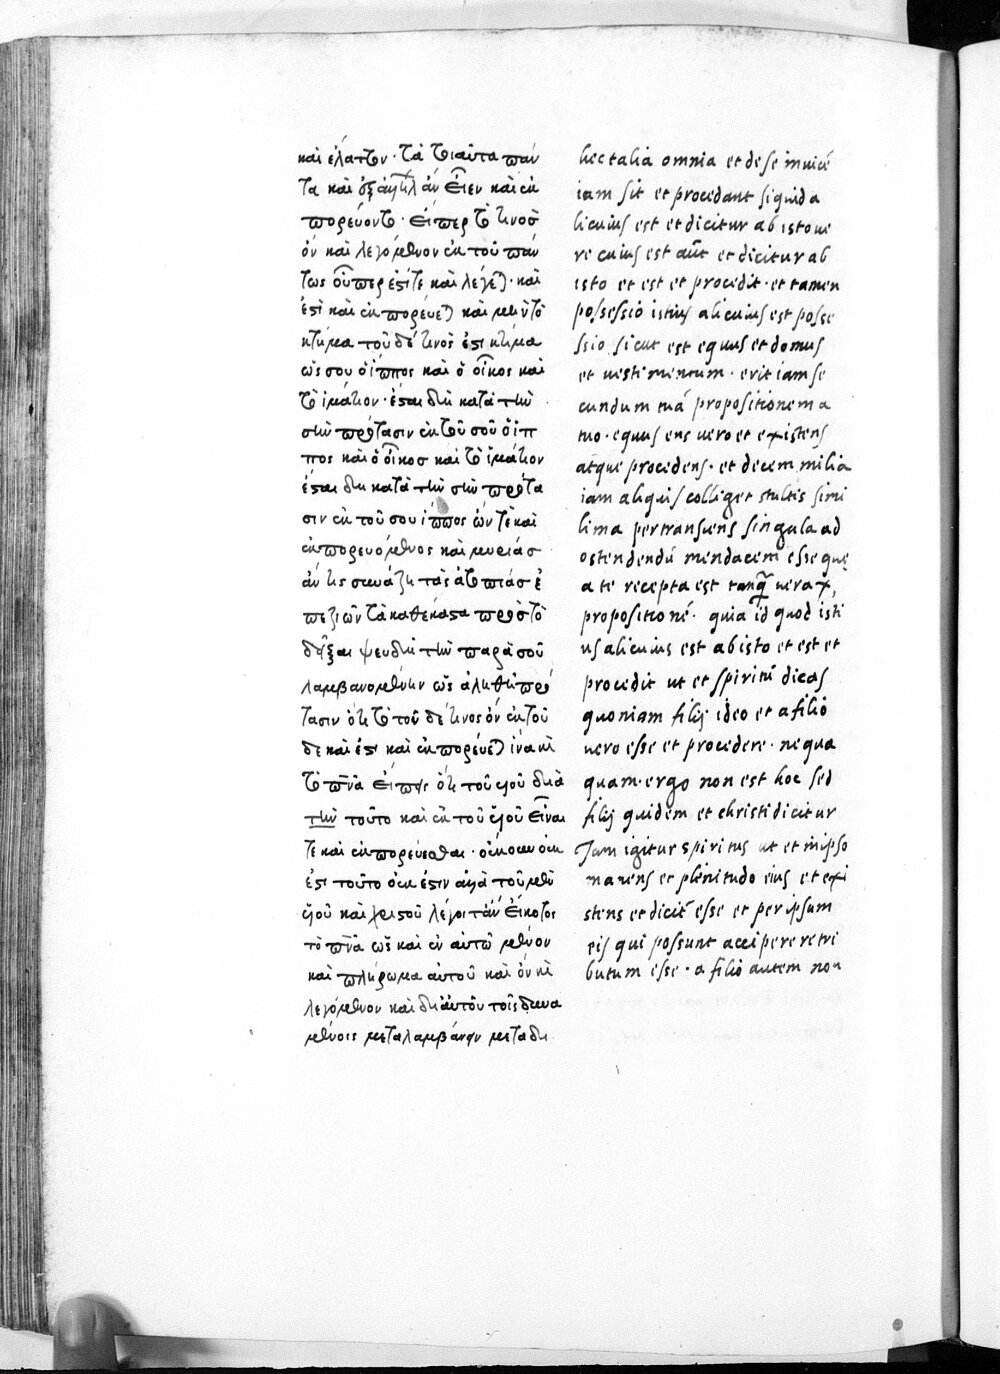 καὶ ἐλάττον · τὰ τοιαῦτα πάν
τα καὶ ἐξ ἀλλήλων ἂν εἶεν καὶ ἐκ
πορεύοντο · εἴπερ τό τινος
ὂν καὶ λεγόμενον ἐκ τοῦ πάν
τως οὗπερ ἐστί τε καὶ λέγεται · καὶ
ἐστὶ καὶ ἐκπορεύεται καὶ μὴν τὸ
κτῆμα τοῦ δέ τινος ἐστι κτῆμα
ὥς σου ὁ ἵππος καὶ ὁ οἶκος καὶ
τὸ ἱμάτιον · ἔσται δὴ κατὰ τὴν
σὴν πρότασιν ἐκ τοῦ σοῦ ὁ ἵπ
πος καὶ ὁ οἶκος καὶ τὸ ἱμάτιον
ἔσται δὴ κατὰ τὴν σὴν πρότα
σιν ἐκ τοῦ σου ἵππος ὤν τὲ καὶ
ἐκπορευόμενος καὶ μυριάς
ἄν τις συνάξῃ τὰς ἀτοπίας ἐ
πεξιὼν τὰ καθέκαστα πρὸς τὸ
δεῖξαι ψευδῆ τὴν παρὰ σοῦ
λαμβανομένην ὡς ἀληθῆ πρό
τασιν ὅτι τὸ τοῦ δέ τινος ὂν ἐκ τοῦ
δε καὶ ἐστὶ καὶ ἐκπορεύεται ἵνα καὶ
τὸ πνα εἴπῃς ὅτι τοῦ υἱοῦ διὰ
τὴν τοῦτο καὶ ἐκ τοῦ υἱοῦ εἶναι
τὲ καὶ ἐκπορεύεσθαι · οὔκουν οὐκ
ἔστι τοῦτο οὐκ ἔστιν ἀλλὰ τοῦ μὲν
υἱοῦ καὶ χριστοῦ λέγοιτ' ἂν εἰκότως
τὸ πνα ὡς καὶ ἐν αὐτῷ μένον
καὶ πλήρωμα αὐτοῦ καὶ ὂν καὶ
λεγόμενον καὶ δι' αὐτοῦ τοῖς δυνα
μένοις μεταλαμβάνειν μεταδι
hec talia omnia et de se inuicē
iam sit et procedant siquid a
licuius est et dicitur ab isto ue
re cuius est aūt et dicitur ab
isto et est et procedit · et tamen
possessio istius alicuius est posse
ssio sicut est equus et domus
et uestimentum · erit iam se
cundum tuā propositionem a
tuo · equus ens uero et existens
atque procedens · et decem milia
iam aliquis colliget stultis simi
lima pertransiens singula ad
ostendendū mendacem esse quę
a te recepta est tanq̄ uera
propositionē · quia id quod isti
us alicuius est ab isto et est et
procedit ut et spiritū dicas
quoniam filij ideo et a filio
uero esse et procedere · nequa
quam · ergo non est hoc sed
filij quidem et christi dicitur
Iam igitur spiritus ut et in ipso
manens et plenitudo eius et exi
stens et dicit̄ esse et per ipsum
eis qui possunt accipere retri
butum esse · a filio autem non